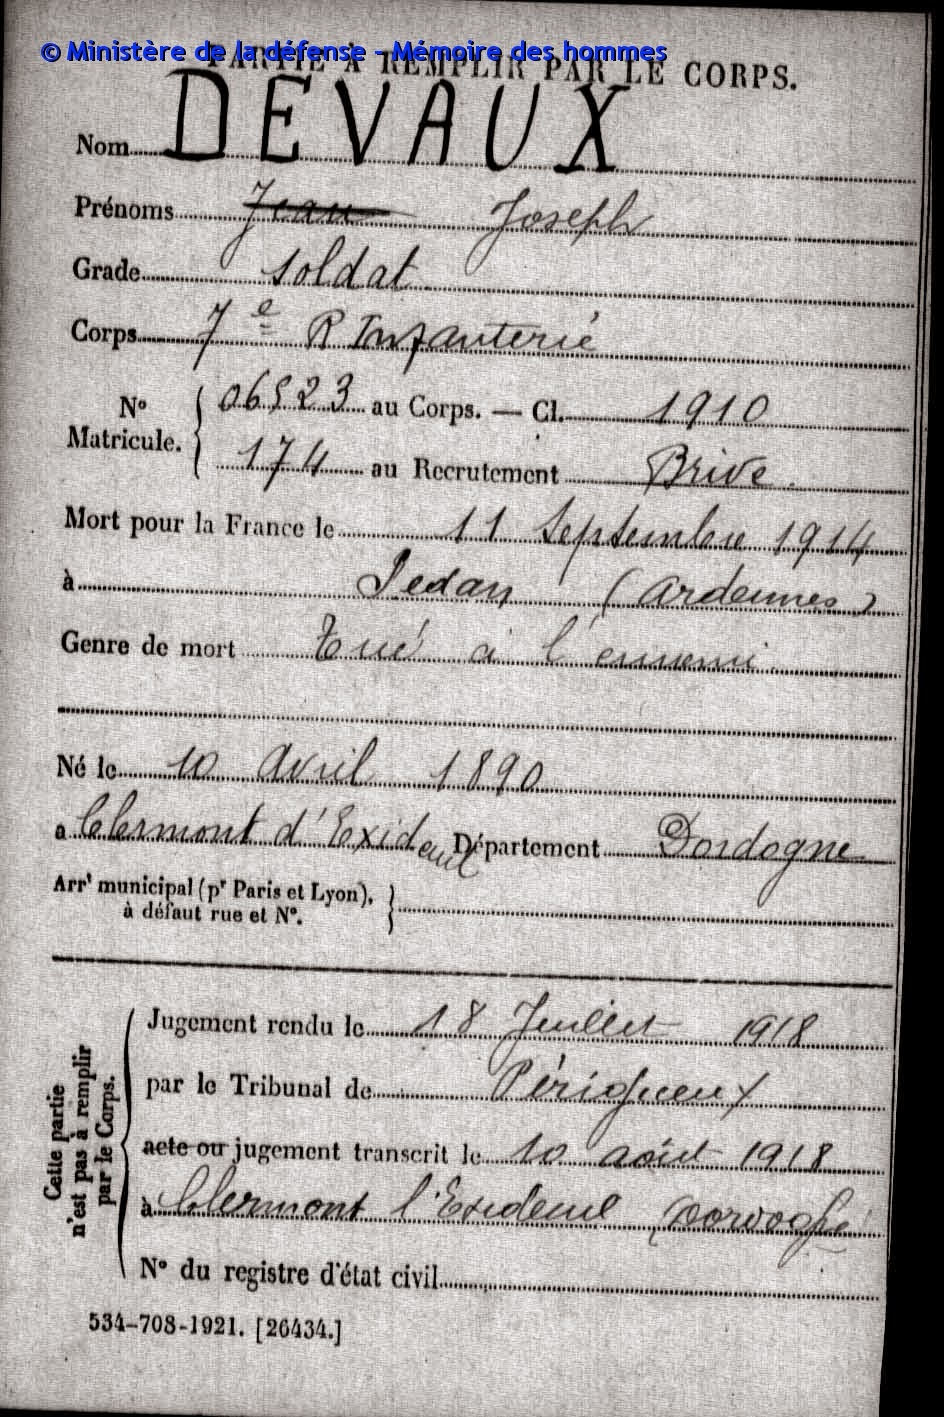 © Ministère de la défense - Mémoire des hommes
PARTIE À REMPLIR PAR LE CORPS.
Nom DEVAUX
Prénoms Jean Joseph
Grade Soldat
Corps 7e R Infanterie
No Matricule. 06523 au Corps. — Cl. 1910
174 au Recrutement Brive.
Mort pour la France le 11 Septembre 1914
à Sedan (Ardennes)
Genre de mort Tué à l'ennemi.
Né le 10 Avril 1890
a Clermont d'Exideuil Département Dordogne
Arrt municipal (pr Paris et Lyon),
à défaut rue et No.
Cette partie n'est pas à remplir par le Corps.
Jugement rendu le 18 Juillet 1918
par le Tribunal de Périgueux
acte ou jugement transcrit le 10 août 1918
à Clermont l'Exideuil (Dordogne
No du registre d'état civil
534-708-1921. [26434.]